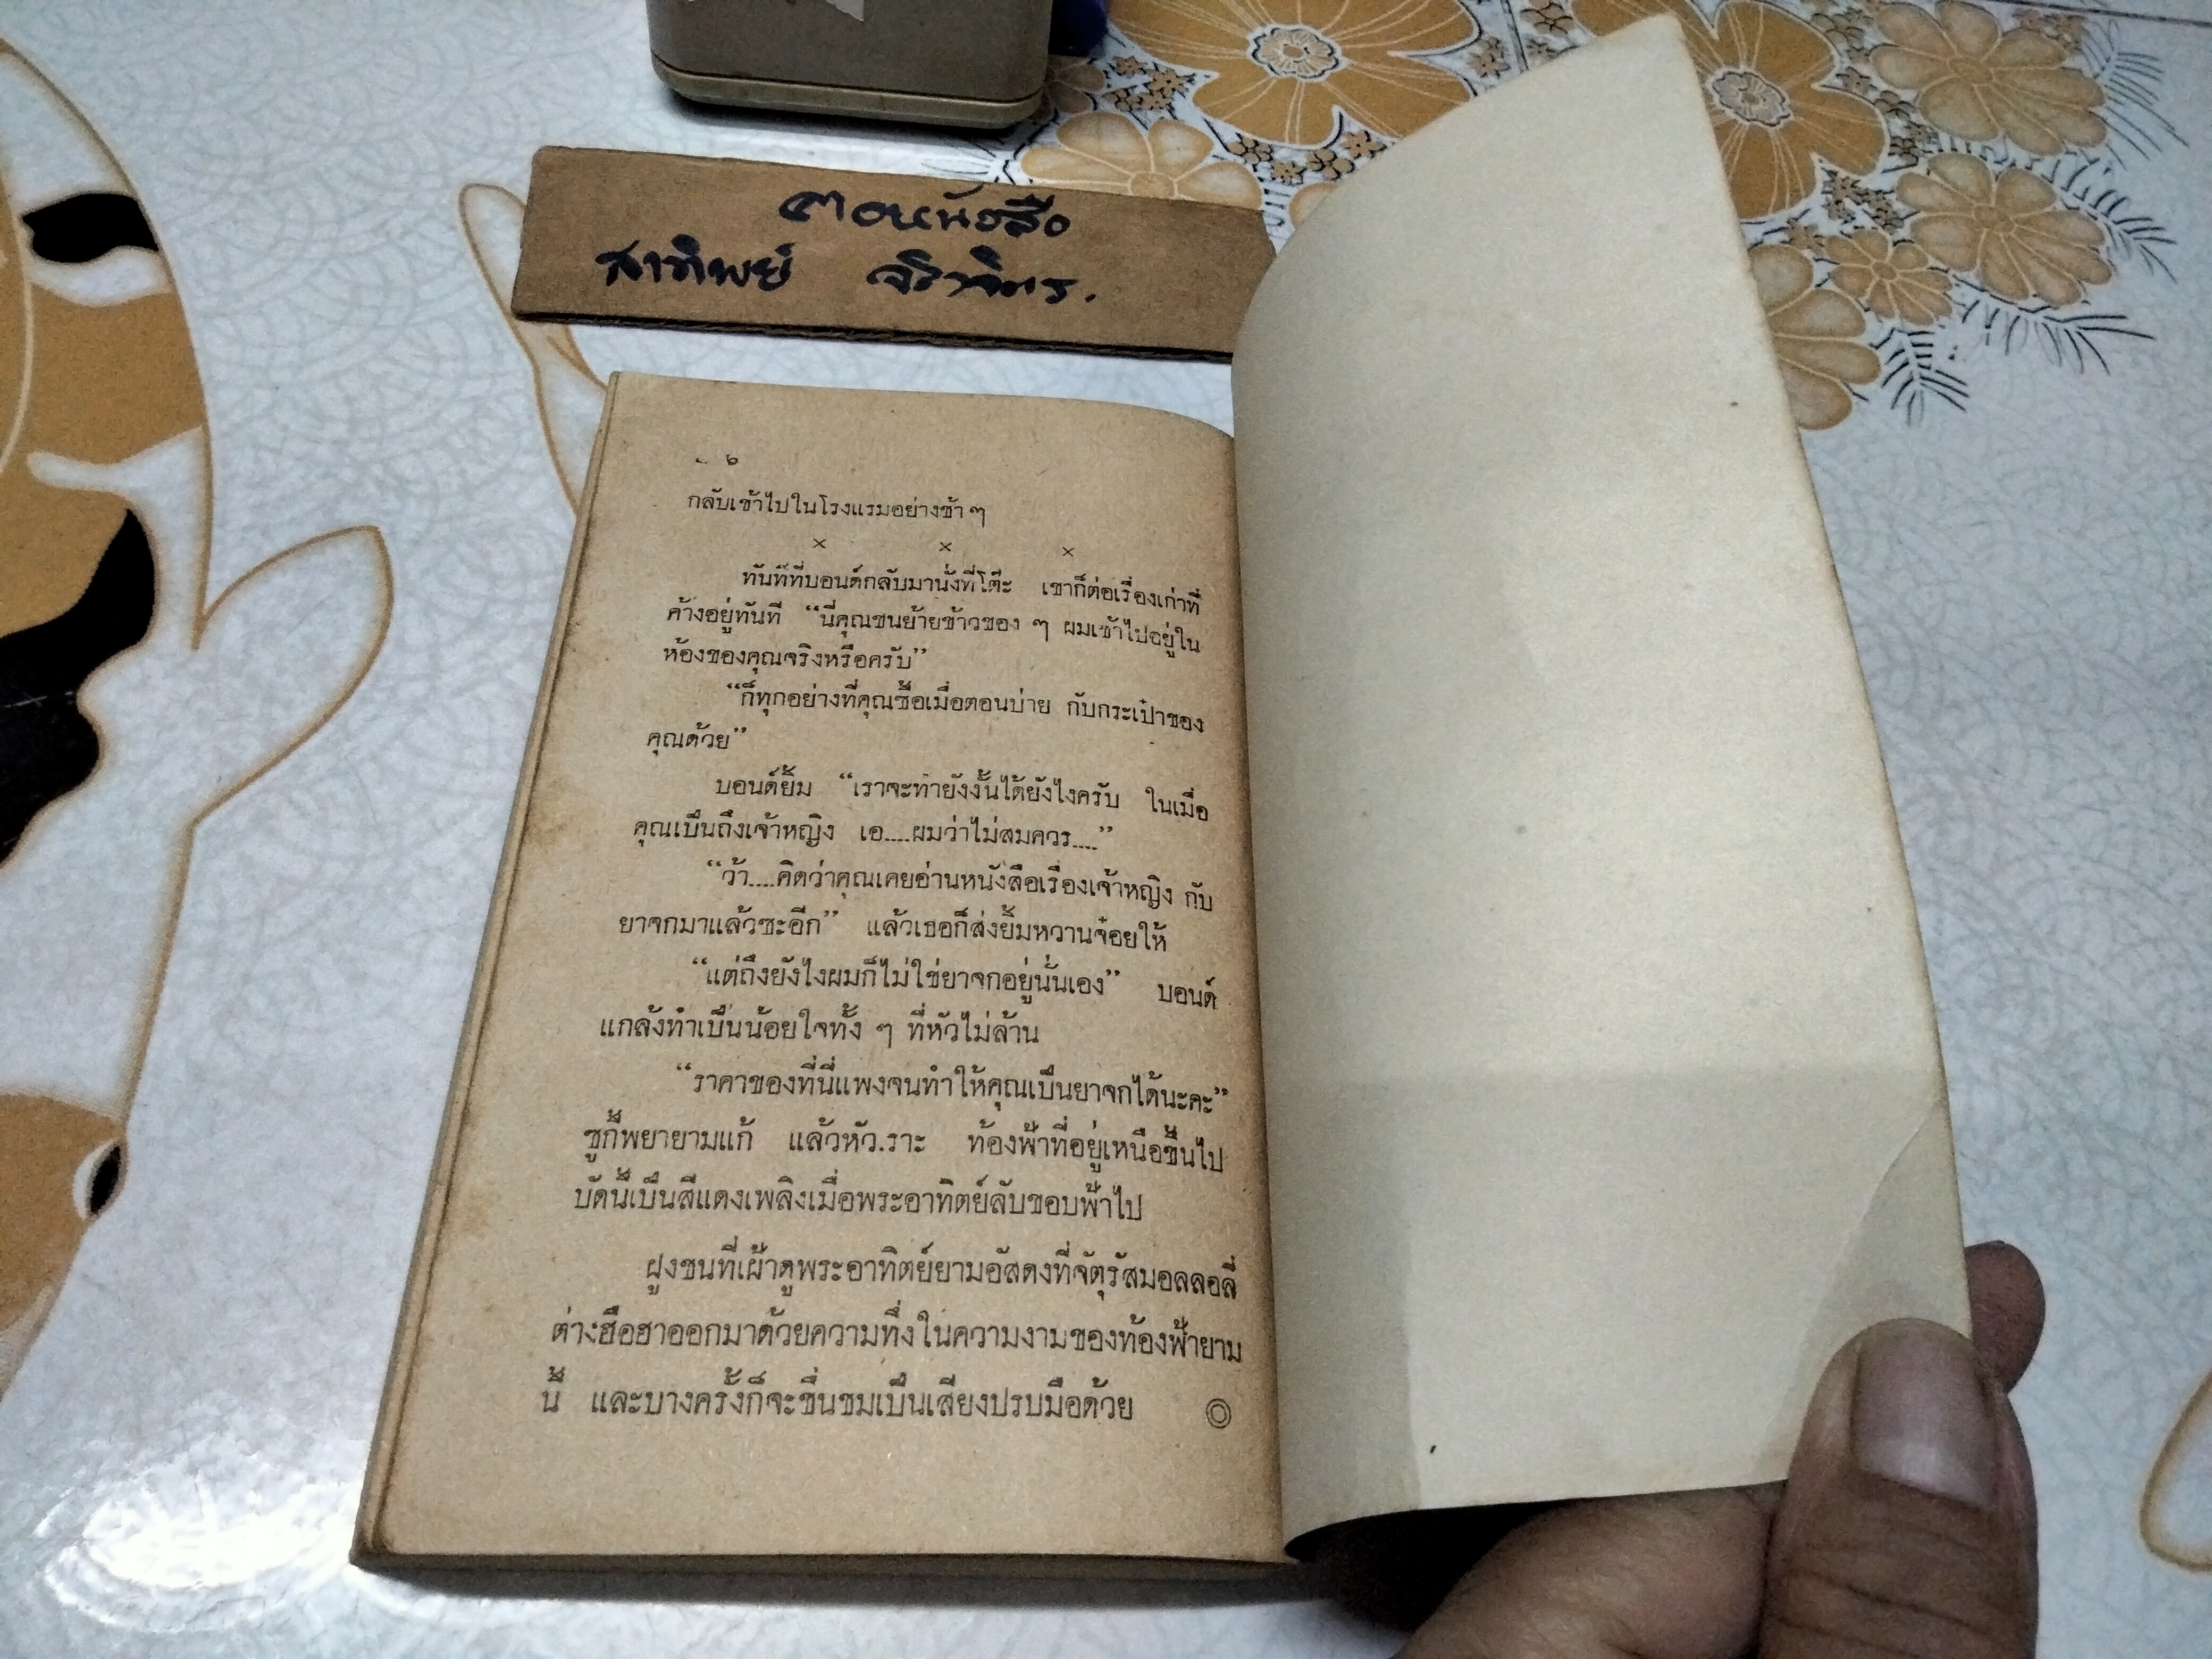 ตอหนังสือ
สาทิพย์
๒
กลับเข้าไปในโรงแรมอย่างช้า ๆ
× × ×
ทันทีที่บอนด์กลับมานั่งที่โต๊ะ เขาก็ต่อเรื่องเก่าที่
ค้างอยู่ทันที “นี่คุณขนย้ายข้าวของ ๆ ผมเข้าไปอยู่ใน
ห้องของคุณจริงหรือครับ”
“ก็ทุกอย่างที่คุณซื้อเมื่อตอนบ่าย กับกระเป๋าของ
คุณด้วย”
บอนด์ยิ้ม “เราจะทำยังงั้นได้ยังไงครับ ในเมื่อ
คุณเป็นถึงเจ้าหญิง เอ....ผมว่าไม่สมควร....”
“ว้า....คิดว่าคุณเคยอ่านหนังสือเรื่องเจ้าหญิง กับ
ยาจกมาแล้วซะอีก” แล้วเธอก็ส่งยิ้มหวานจ๋อยให้
“แต่ถึงยังไงผมก็ไม่ใช่ยาจกอยู่นั่นเอง” บอนด์
แกล้งทำเป็นน้อยใจทั้ง ๆ ที่หัวไม่ล้าน
“ราคาของที่นี่แพงจนทำให้คุณเป็นยาจกได้นะคะ”
ซูกี้พยายามแก้ แล้วหัว.ราะ ท้องฟ้าที่อยู่เหนือขึ้นไป
บัดนี้เป็นสีแดงเพลิงเมื่อพระอาทิตย์ลับขอบฟ้าไป
ฝูงชนที่เฝ้าดูพระอาทิตย์ยามอัสดงที่จัตุรัสมอลลอลี่
ต่างฮือฮาออกมาด้วยความทึ่งในความงามของท้องฟ้ายาม
นี้ และบางครั้งก็จะชื่นชมเป็นเสียงปรบมือด้วย